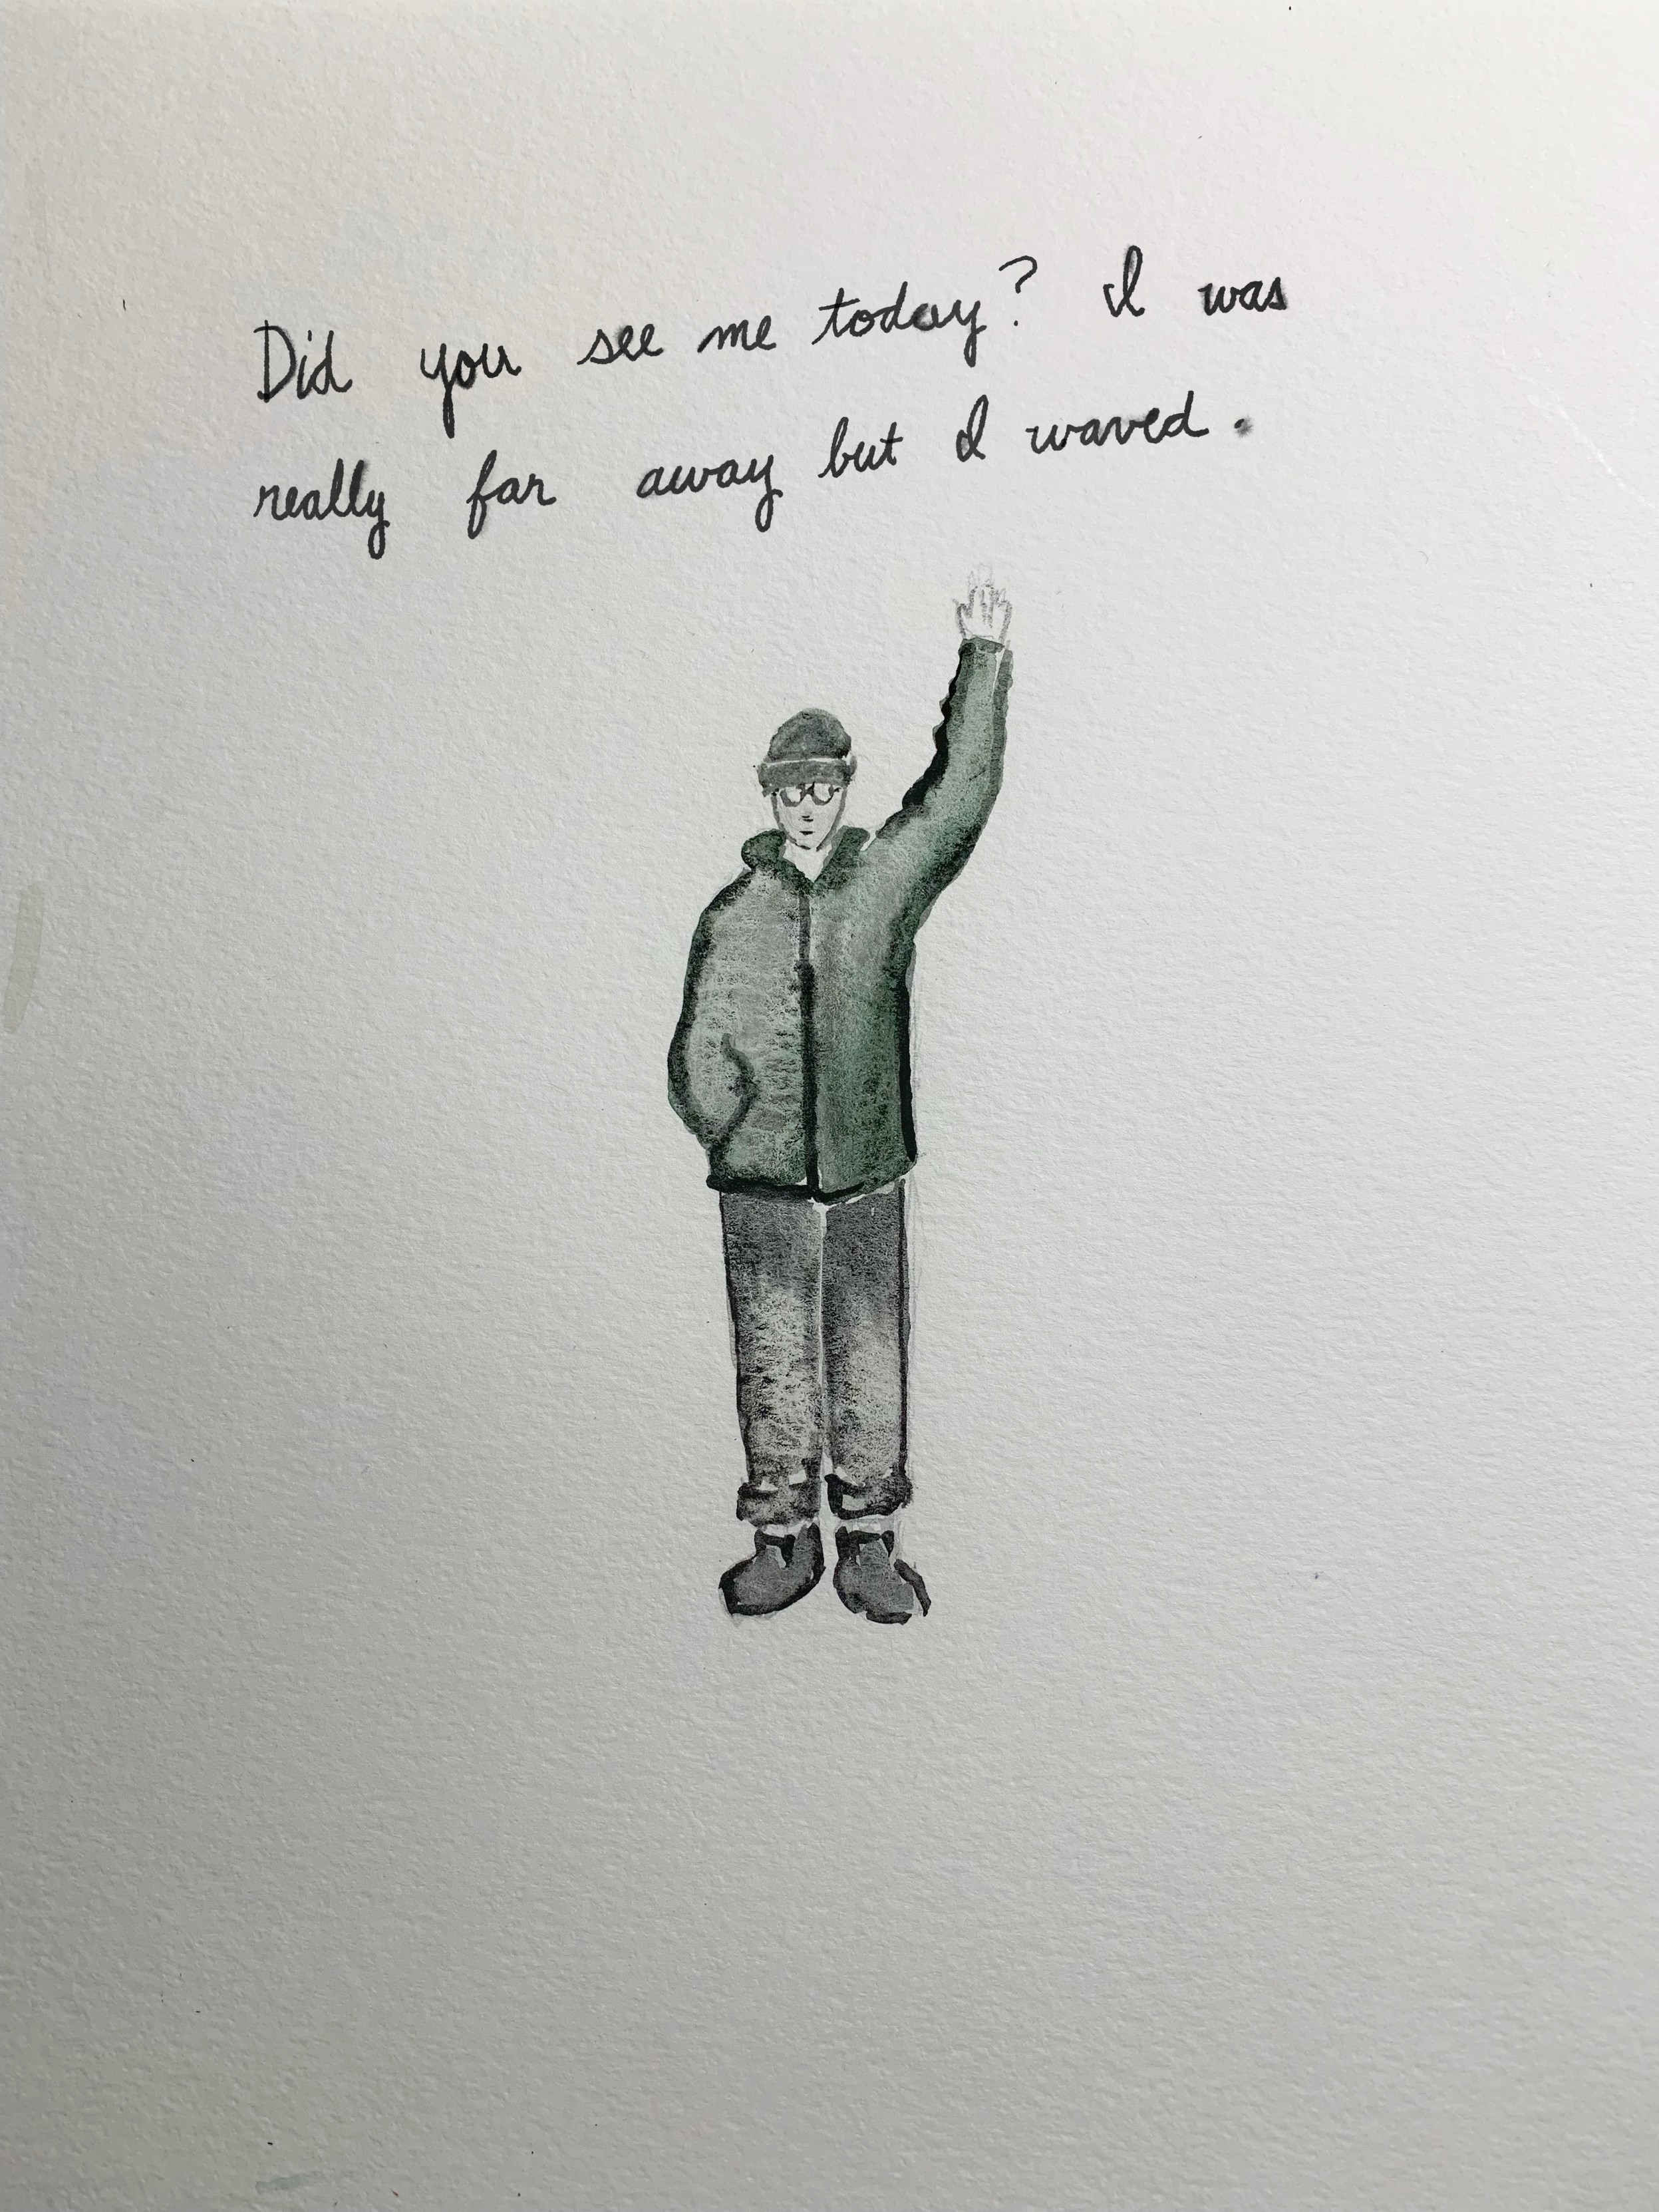 Did you see me today? I was
really far away but I waved.